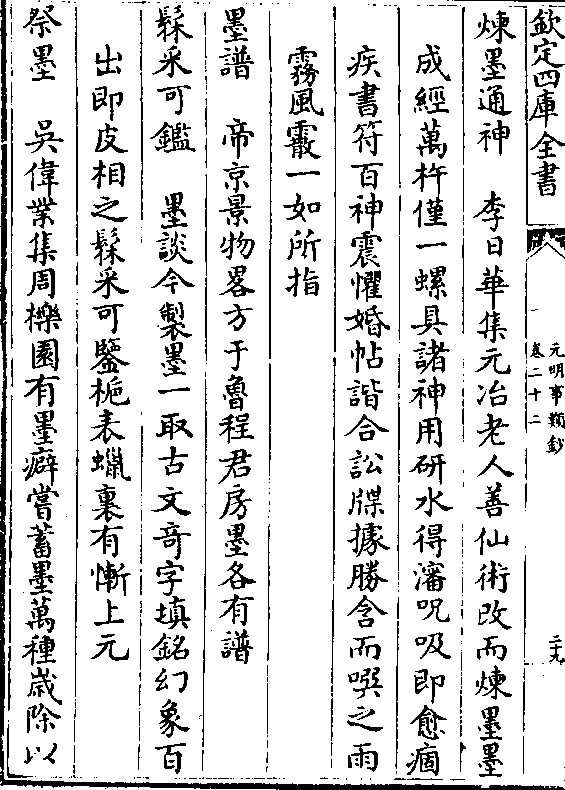 欽定四庫全書
元明事類鈔
卷二十二
二十九
煉墨通神 李日華集元冶老人善仙術改而煉墨墨
成經萬杵僅一螺具諸神用研水得瀋呪吸即愈痼
疾書符百神震懼婚帖諧合訟牒據勝含而噀之雨
霧風霰一如所指
墨譜 帝京景物畧方于魯程君房墨各有譜
髹采可鑑 墨談今製墨一取古文竒字填銘幻象百
出即皮相之髹采可鑒梔表蠟裏有慚上元
祭墨 吳偉業集周櫟園有墨癖嘗蓄墨萬種歳除以